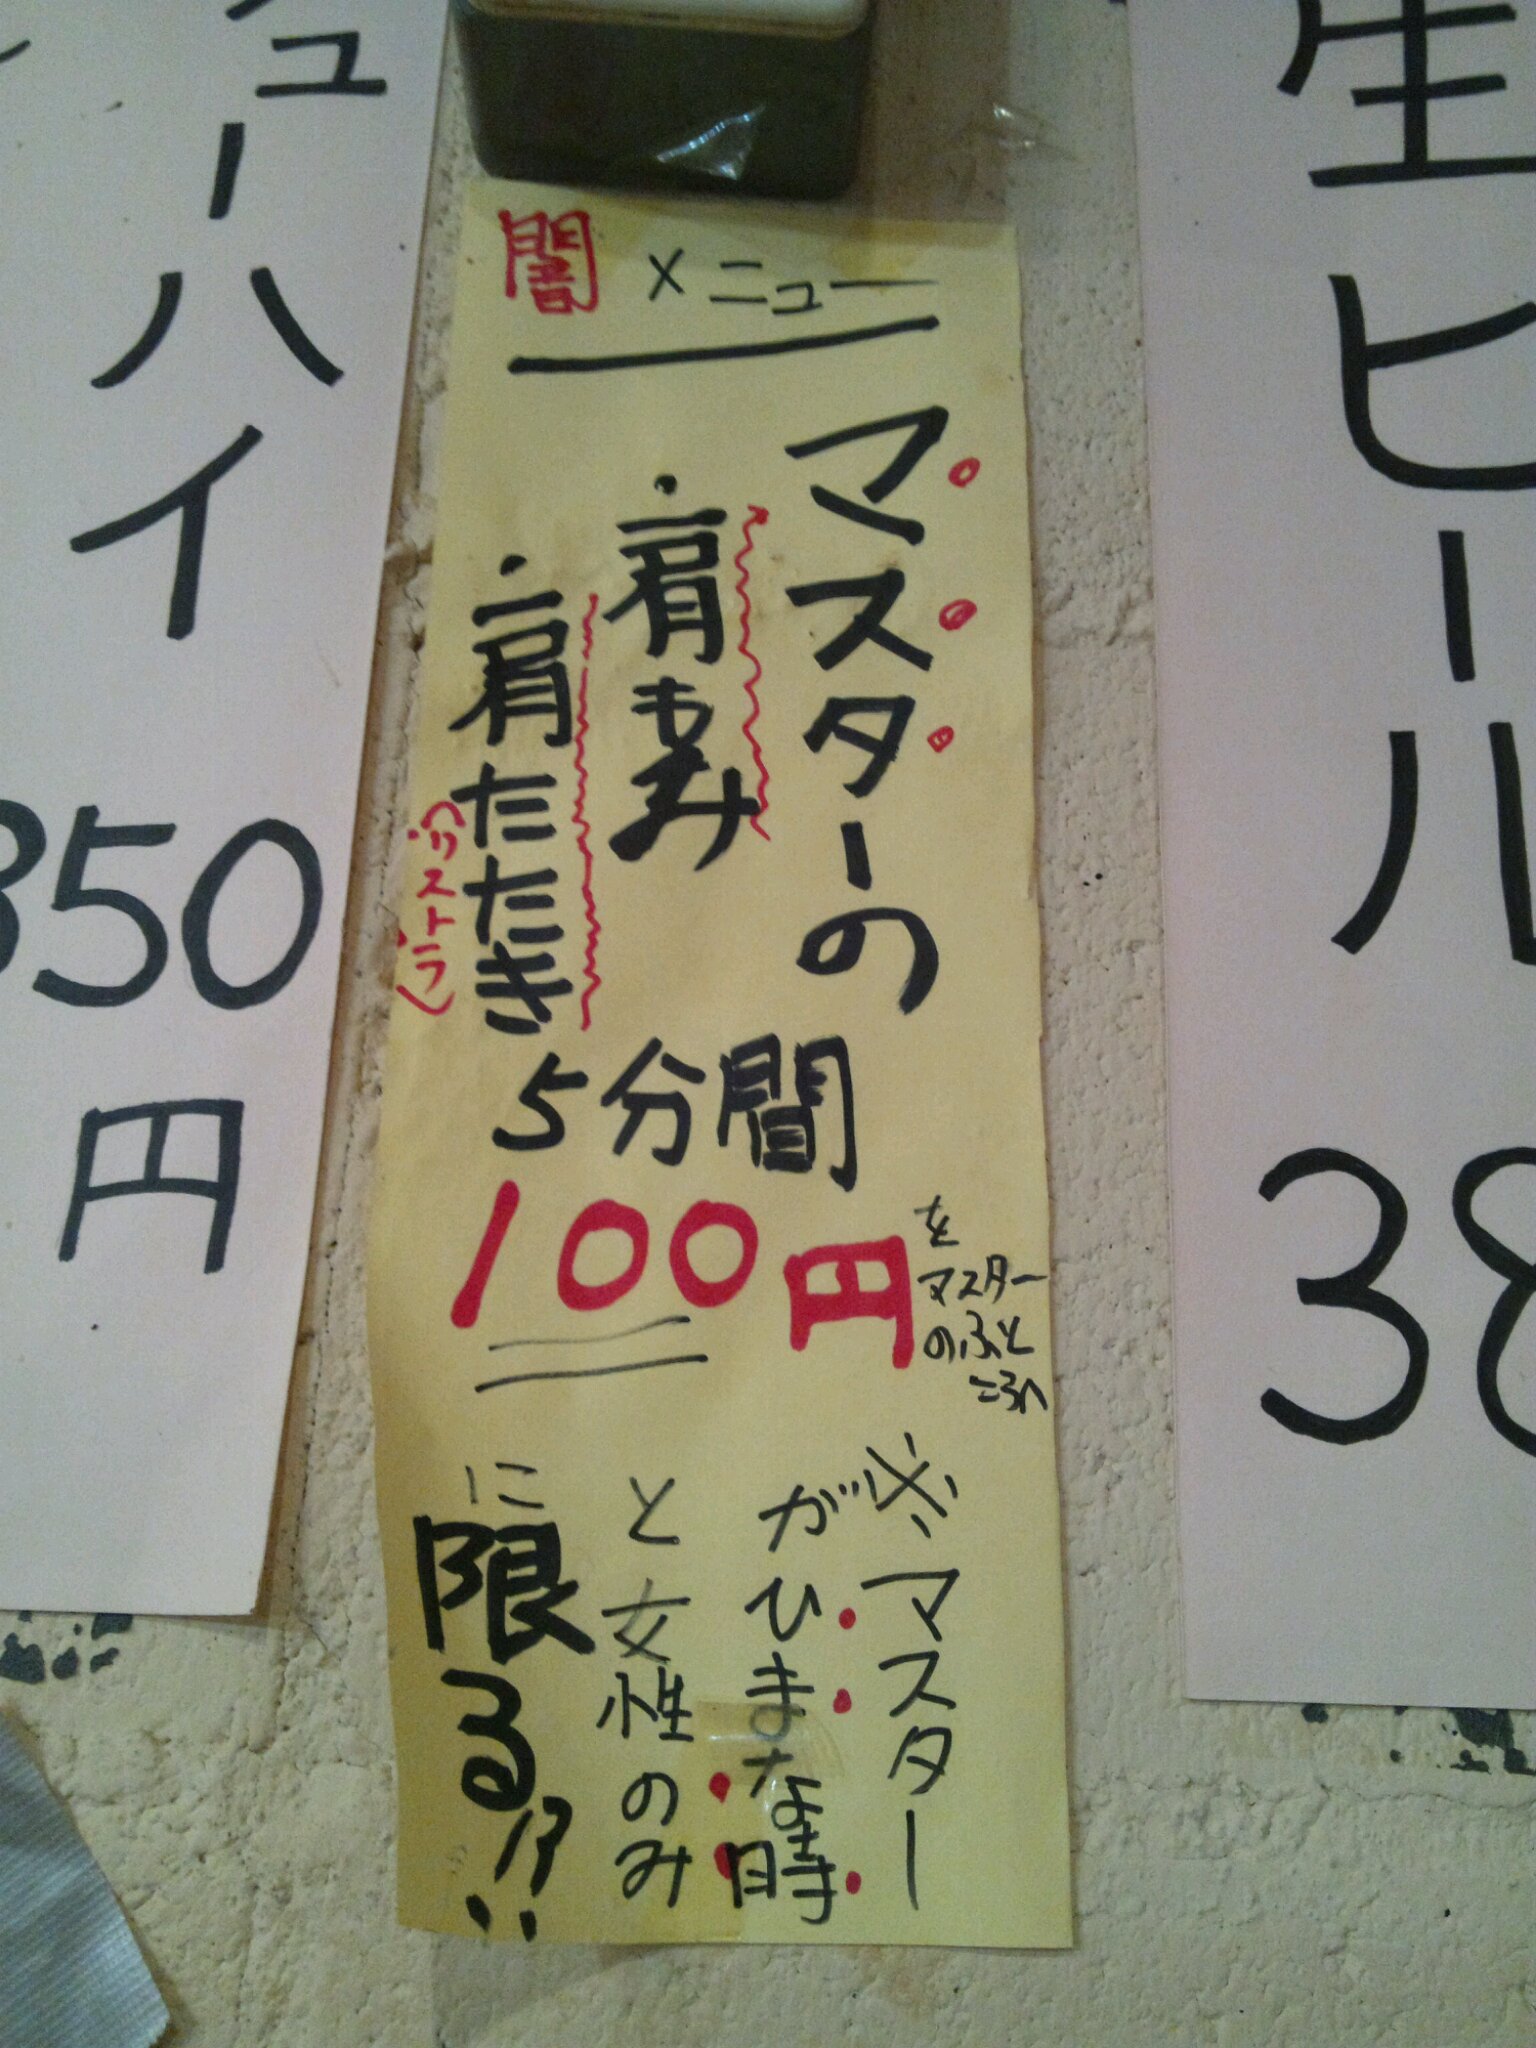 闇メニュー
マスターの
・肩もみ
・肩たたき
(リストラ)
5分間
100円
を
マスター
のふと
ころへ
※マスター
がひまな時
と女性のみ
に限る!?
生ビール 38
ューハイ 350円